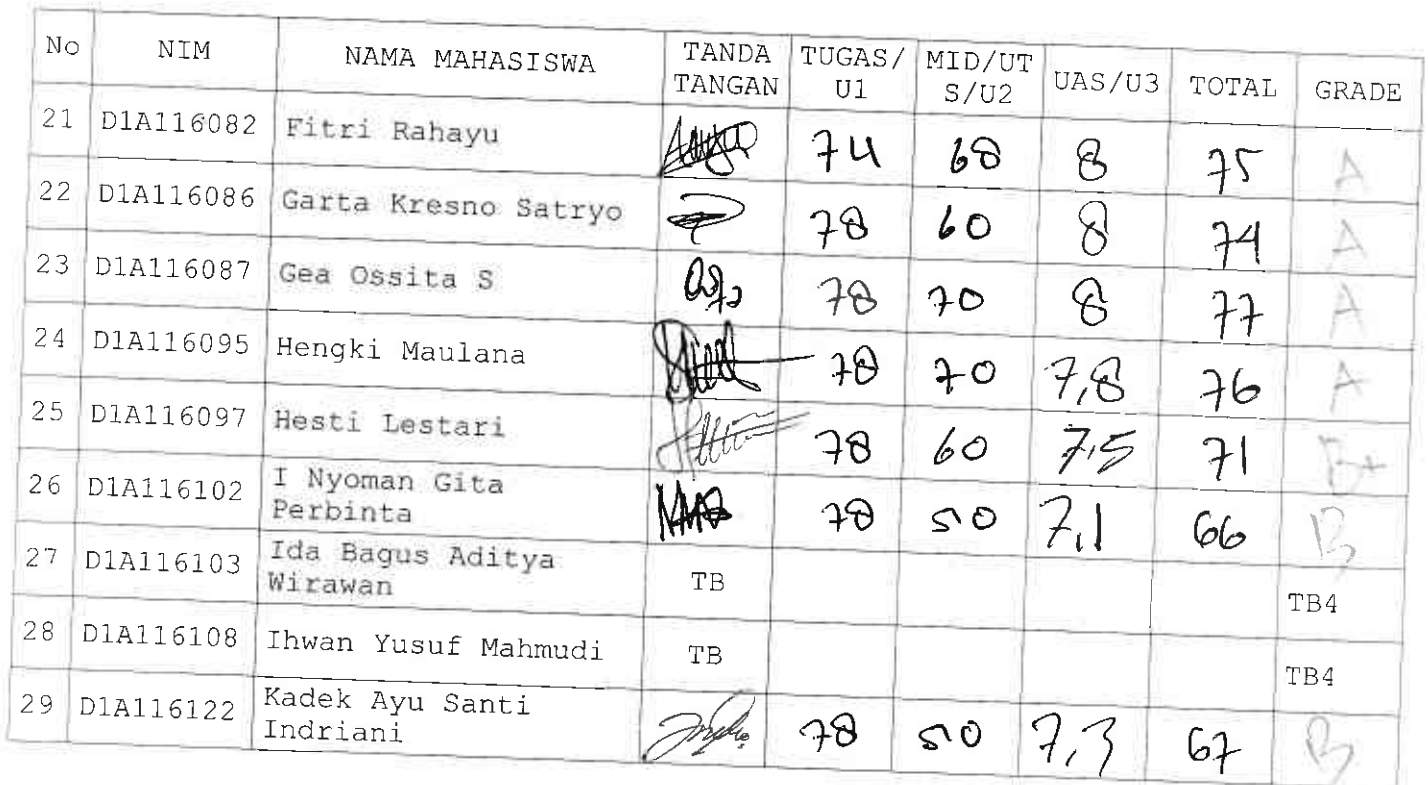 No NIM NAMA MAHASISWA TANDA TANGAN TUGAS/ U1 MID/UT S/U2 UAS/U3 TOTAL GRADE
21 D1A116082 Fitri Rahayu 74 68 8 75 A
22 D1A116086 Garta Kresno Satryo 78 60 8 74 A
23 D1A116087 Gea Ossita S 78 70 8 77 A
24 D1A116095 Hengki Maulana 78 70 7,8 76 A
25 D1A116097 Hesti Lestari 78 60 7,5 71 B+
26 D1A116102 I Nyoman Gita Perbinta 78 50 7,1 66 B
27 D1A116103 Ida Bagus Aditya Wirawan TB TB4
28 D1A116108 Ihwan Yusuf Mahmudi TB TB4
29 D1A116122 Kadek Ayu Santi Indriani 78 50 7,3 67 B